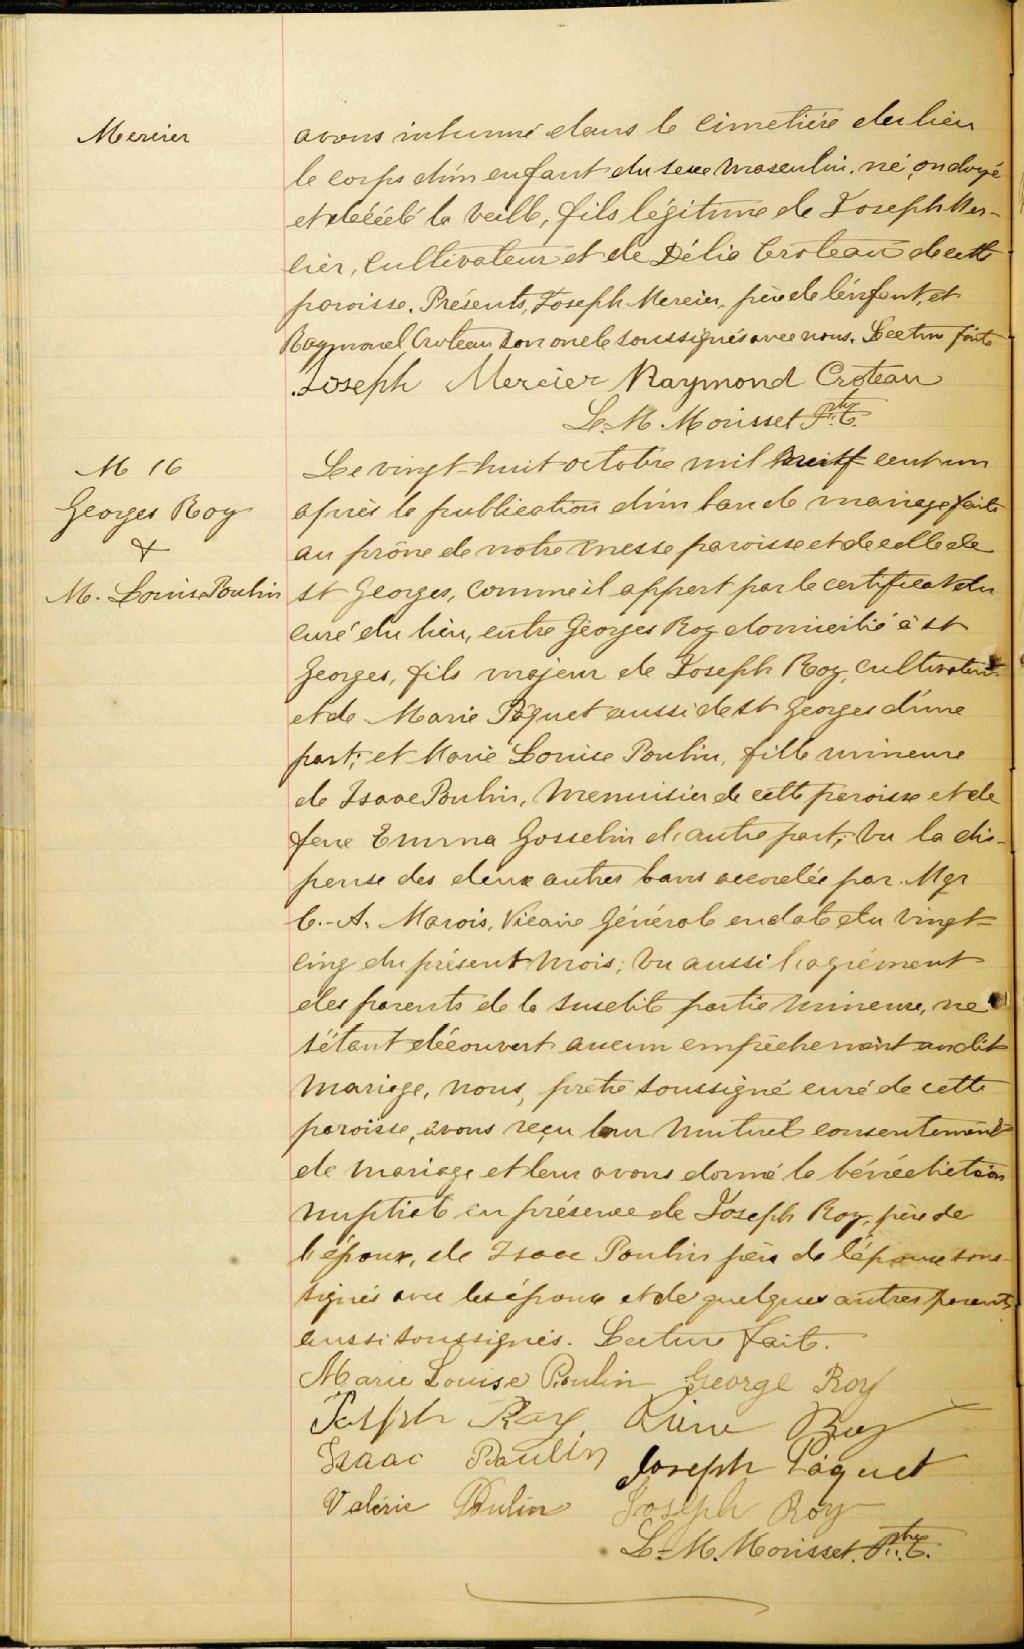 Mercier
avons inhumé dans le cimetière du lieu
le corps d'un enfant du sexe masculin, né, ondoyé
et décédé la veille, fils légitime de Joseph Mer-
cier, cultivateur et de Délia Croteau de cette
paroisse. Présents, Joseph Mercier, père de l'enfant, et
Raymond Croteau son oncle soussignés avec nous. Lecture faite
Joseph Mercier Raymond Croteau
L. M. Morisset Ptre
M 16
Georges Roy
&
M. Louise Poulin
Le vingt-huit octobre mil neuf cent un
après la publication d'un ban de mariage faite
au prône de notre messe paroisse et de celle de
st Georges, comme il appert par le certificat du
curé du lieu, entre Georges Roy domicilié à st
Georges, fils majeur de Joseph Roy, cultivateur
et de Marie Pâquet aussi de st Georges d'une
part; et Marie Louise Poulin, fille mineure
de Isaac Poulin, Menuisier de cette paroisse et de
feue Emma Gosselin d'autre part; Vu la dis-
pense des deux autres bans accordée par Mgr
C.-A. Marois, Vicaire Général en date du vingt-
cinq du présent mois; Vu aussi l'agrément
des parents de la susdite partie mineure, ne
s'étant découvert aucun empêchement au dit
mariage, nous, prêtre soussigné curé de cette
paroisse, avons reçu leur mutuel consentement
de mariage et leur avons donné la bénédiction
nuptiale en présence de Joseph Roy, père de
l'époux, de Isaac Poulin père de l'épouse sous-
signés avec les époux et de quelques autres parents
aussi soussignés. Lecture faite.
Marie Louise Poulin George Roy
Joseph Roy Roy
Isaac Poulin Joseph Pâquet
Valérie Poulin Joseph Roy
L.-M. Morisset. Ptre